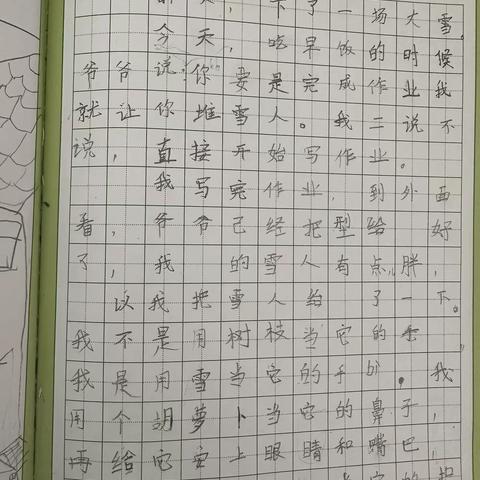 下了一场大雪。
今天,吃早饭的时候
爷爷说:你要是完成作业我
就让你堆雪人。我二说不
说,直接开始写作业。
我写完作业,到外面
看,爷爷己经把型给好
了,我的雪人有点儿胖,
以我把雪人给了一下。
我不是用树枝当它的手
我是用雪当它的手的。我
用个胡萝卜当它的鼻子,
再给它安上眼睛和嘴巴,